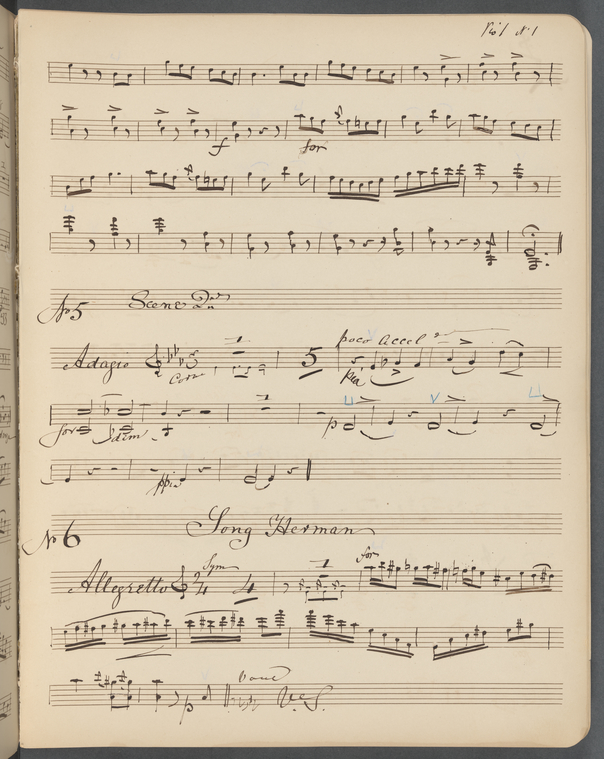 Vio 1 No. 1
f for
No 5 Scene 2nd
poco accel
Adagio Cor 1 5 pia
for dim p
ppia
No 6 Song Herman
Sym 1 for
Allegretto 2/4 4
p V.S.